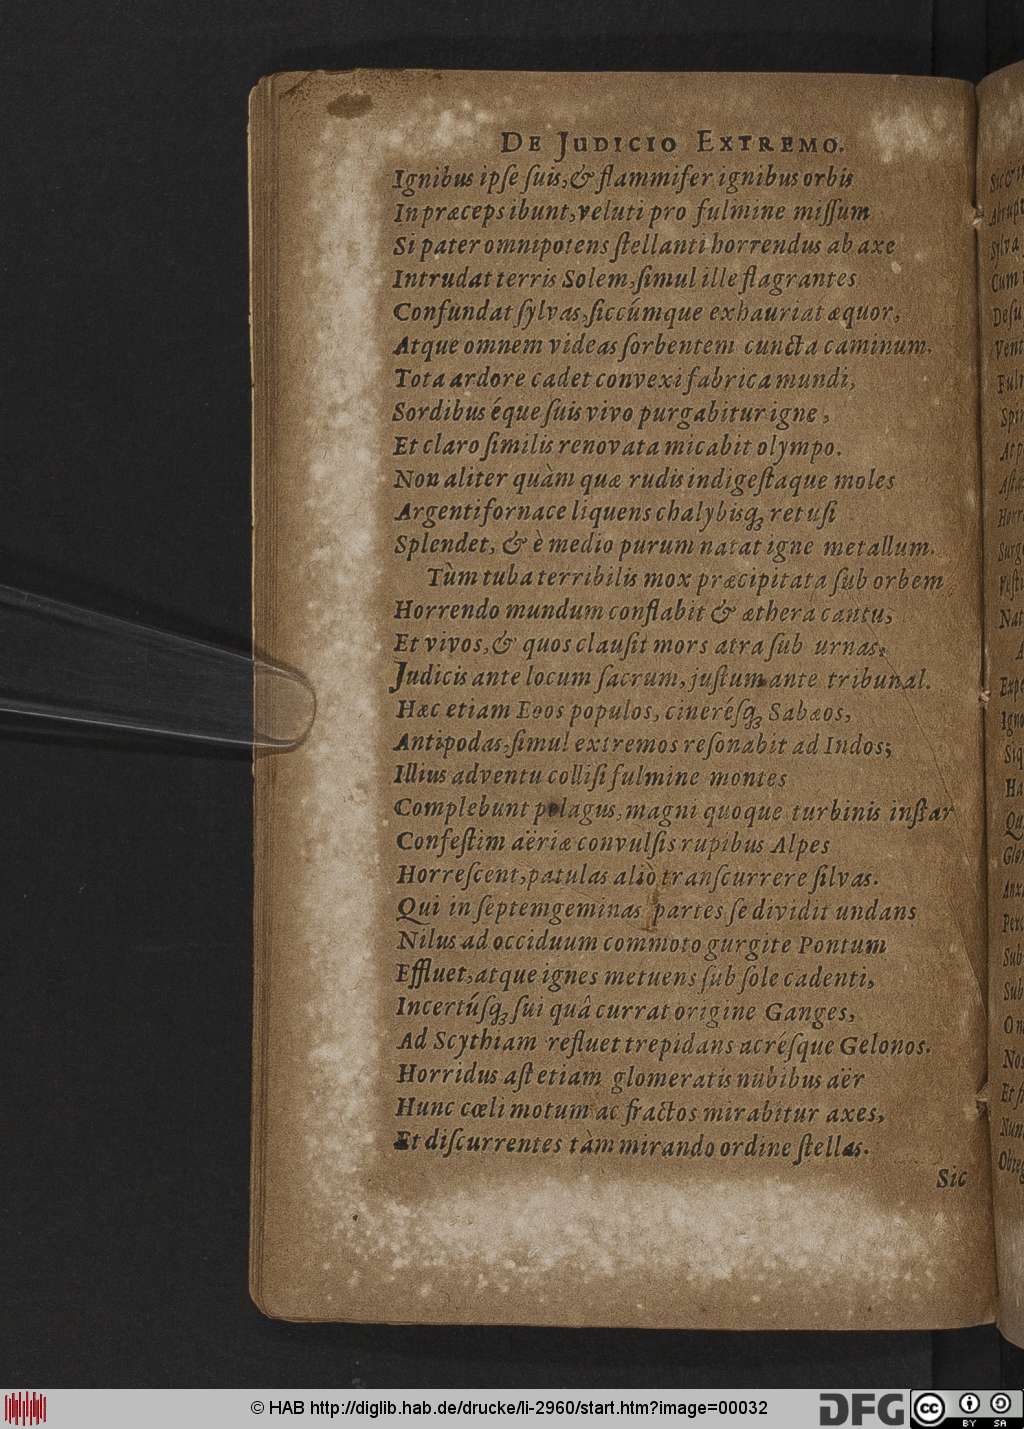 DE JUDICIO EXTREMO.
Ignibus ipſe ſuis, & flammifer ignibus orbis
In præceps ibunt, veluti pro fulmine miſſum
Si pater omnipotens ſtellanti horrendus ab axe
Intrudat terris Solem, ſimul ille flagrantes
Confundat ſylvas, ſiccúmque exhauriat æquor,
Atque omnem videas ſorbentem cuncta caminum.
Tota ardore cadet convexi fabrica mundi,
Sordibus éque ſuis vivo purgabitur igne,
Et claro ſimilis renovata micabit olympo.
Non aliter quàm quæ rudis indigeſtaque moles
Argenti fornace liquens chalybisq́; retuſi
Splendet, & è medio purum natat igne metallum.
Tùm tuba terribilis mox præcipitata ſub orbem
Horrendo mundum conflabit & æthera cantu,
Et vivos, & quos clauſit mors atra ſub urnas,
Judicis ante locum ſacrum, juſtum ante tribunal.
Hæc etiam Eoos populos, cineréſq; Sabæos,
Antipodas, ſimul extremos reſonabit ad Indos;
Illius adventu colliſi fulmine montes
Complebunt pelagus, magni quoque turbinis inſtar
Confeſtim aëriæ convulſis rupibus Alpes
Horreſcent, patulas aliò tranſcurrere ſilvas.
Qui in ſeptemgeminas partes ſe dividit undans
Nilus ad occiduum commoto gurgite Pontum
Effluet, atque ignes metuens ſub ſole cadenti,
Incertúſq; ſui quâ currat origine Ganges,
Ad Scythiam refluet trepidans acréſque Gelonos.
Horridus aſt etiam glomeratis nubibus aër
Hunc cœli motum ac fractos mirabitur axes,
Et diſcurrentes tàm mirando ordine ſtellas.
Sic
© HAB http://diglib.hab.de/drucke/li-2960/start.htm?image=00032
DFG
cc BY SA